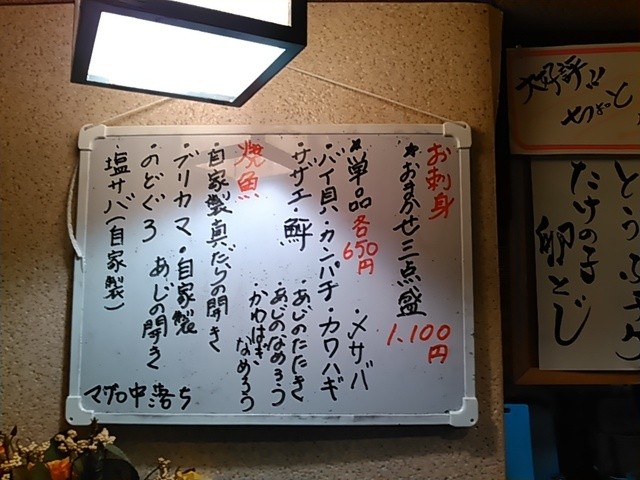 お刺身
★おまかせ三点盛
1,100円
★単品各650円
・メサバ
・バイ貝・カンパチ・カワハギ
・サザエ
・あじのたたき
あじのなめろう
かわはぎなめろう
焼魚
・自家製真だらの開き
・ブリカマ・自家製
・のどぐろ あじの開き
・塩サバ(自家製)
マグロ中落ち
大好評!!
たけの子
卵とじ